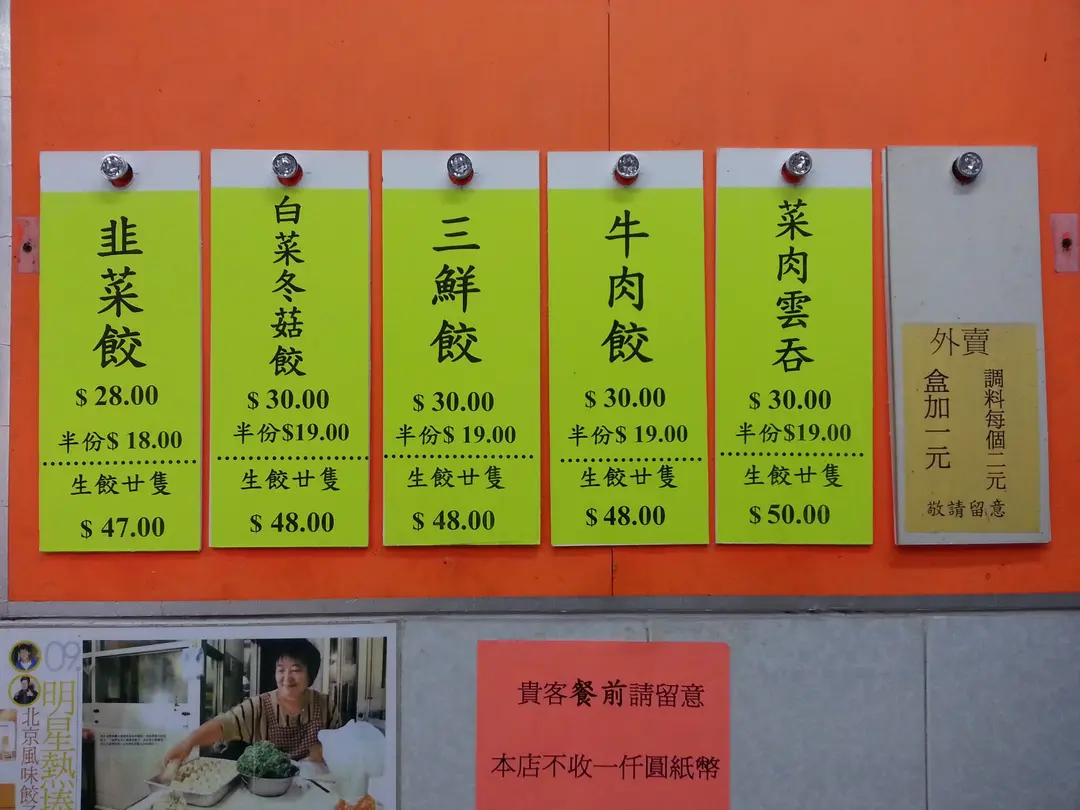 韭菜餃
$ 28.00
半份$ 18.00
生餃廿隻
$ 47.00
白菜冬菇餃
$ 30.00
半份$19.00
生餃廿隻
$ 48.00
三鮮餃
$ 30.00
半份$ 19.00
生餃廿隻
$ 48.00
牛肉餃
$ 30.00
半份$ 19.00
生餃廿隻
$ 48.00
菜肉雲吞
$ 30.00
半份$19.00
生餃廿隻
$ 50.00
外賣
調料每個二元
盒加一元
敬請留意
09.
明星熱捧
北京風味餃子
貴客餐前請留意
本店不收一仟圓紙幣